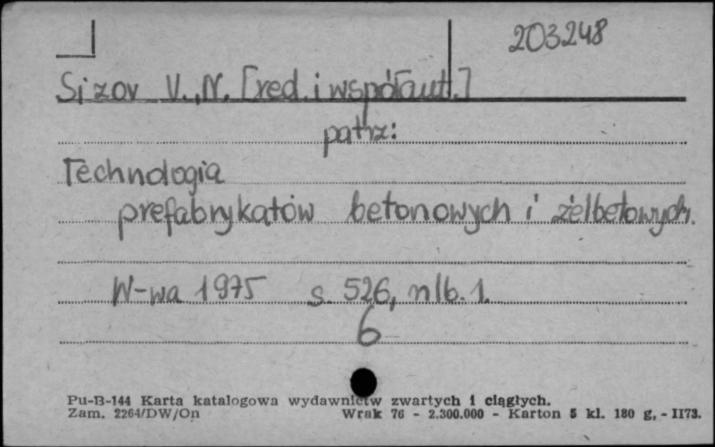 203248
Sizov V.,N. [red. i współaut.]
patrz:
Technologia
prefabrykatów betonowych i żelbetowych.
W-wa 1975 s. 526, nlb. 1.
6
Pu-B-144 Karta katalogowa wydawnictw zwartych i ciągłych.
Zam. 2264/DW/On Wrak 76 - 2.300.000 - Karton 5 kl. 180 g, - II73.